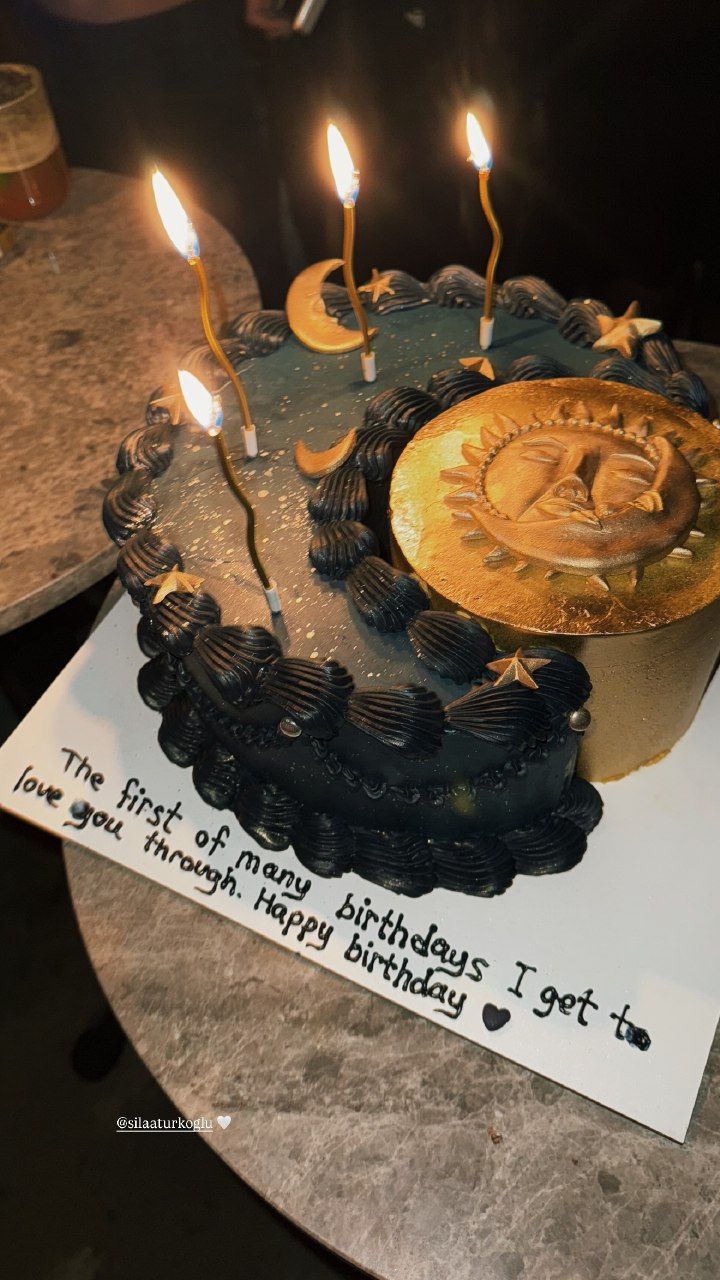 The first of many birthdays I get to
love you through. Happy birthday 🖤
@silaaturkoglu 🤍